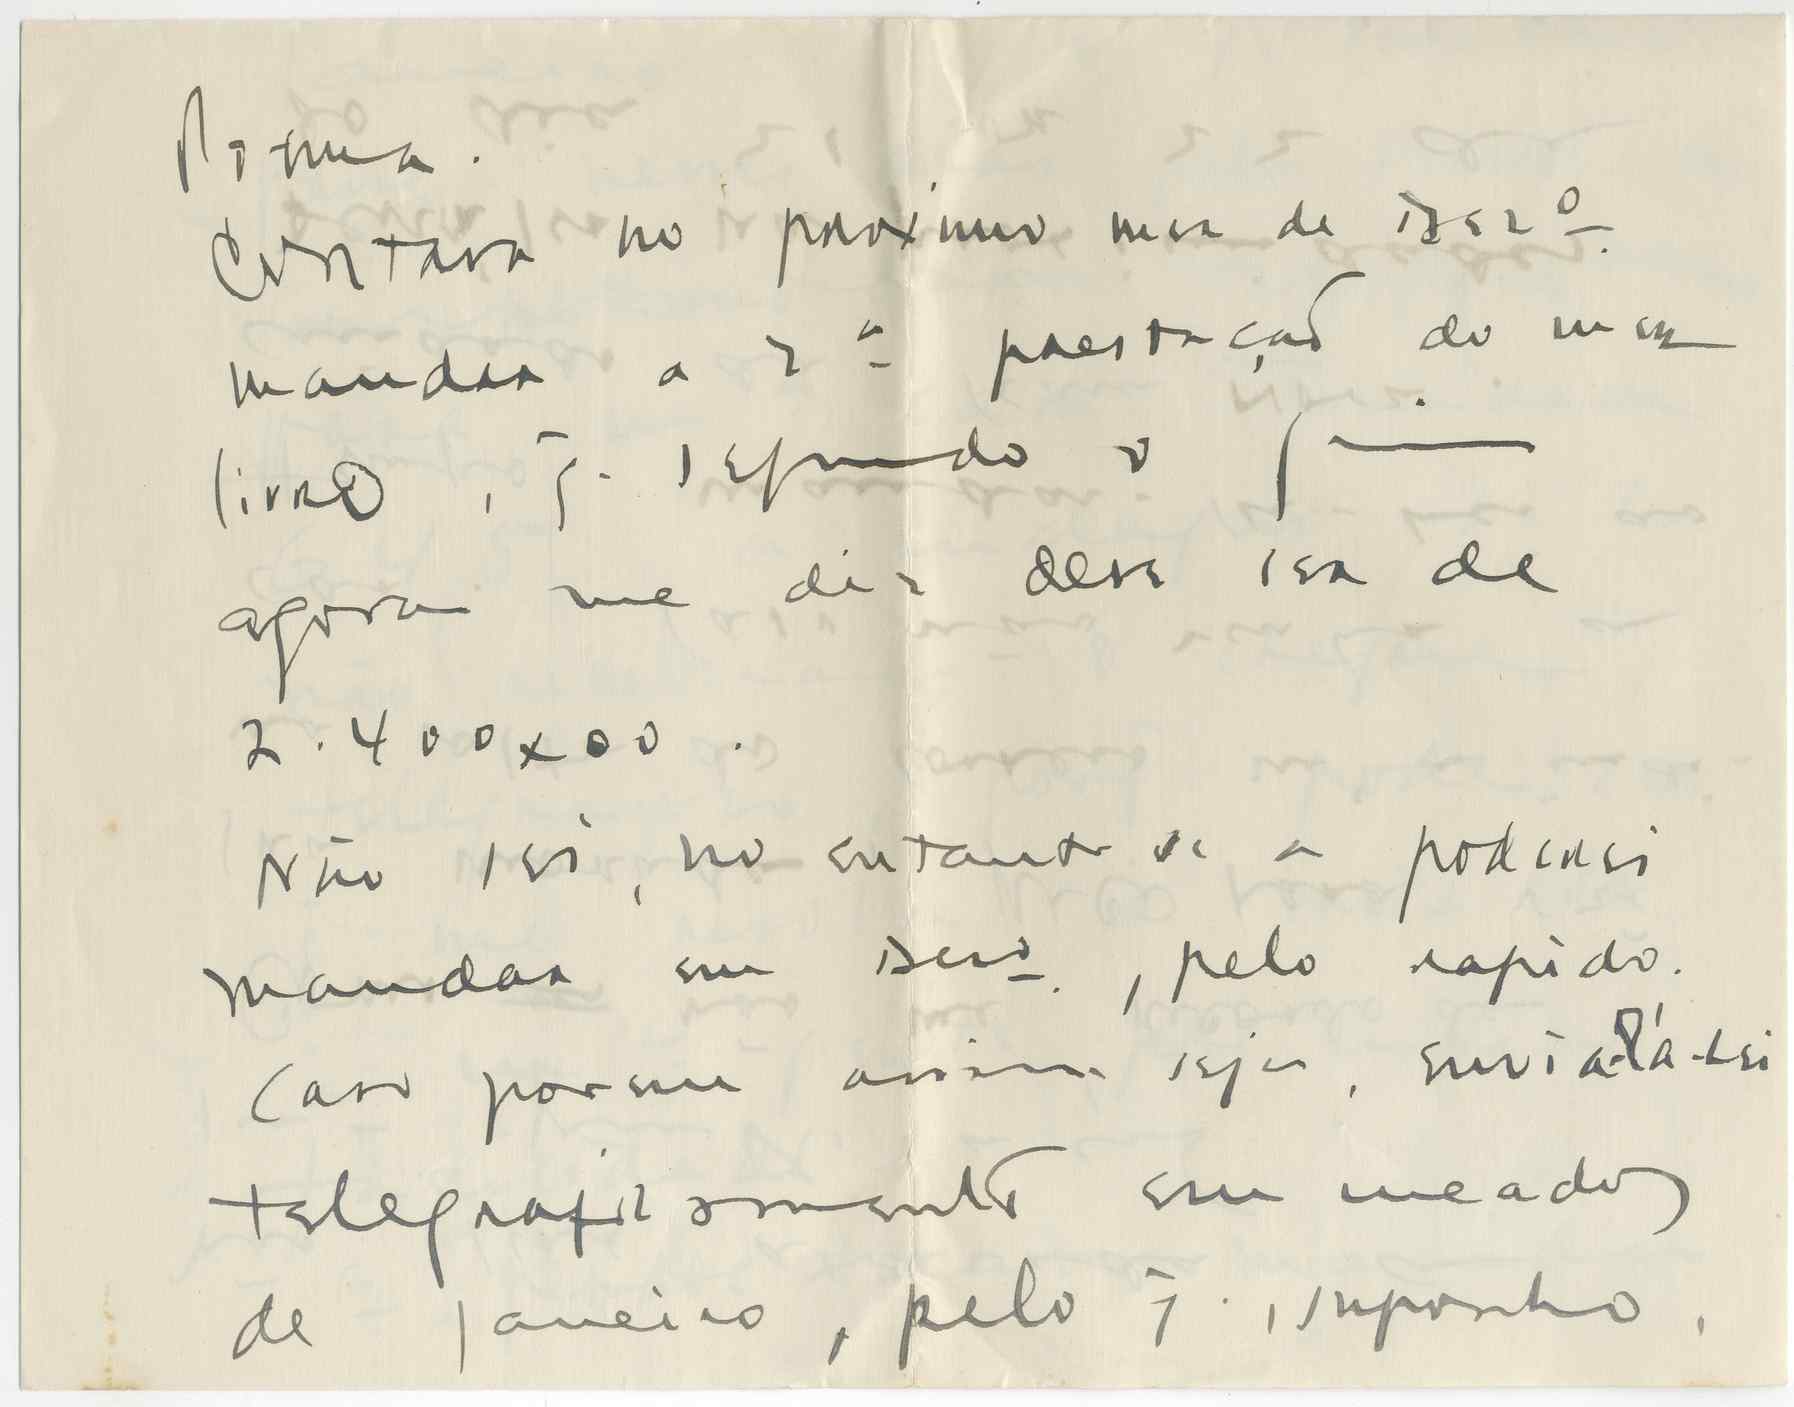 Roma.
Contava no proximo mez de Dezº.
mandar a 2ª prestação do meu
livro, q. segundo o
agora me diz deve ser de
2.400x00.
Não sei, no entanto se a poderei
mandar em Dezº., pelo rapido.
Caso porem assim seja, envia-la-ei
telegraficamente em meados
de janeiro, pelo q. supponho,